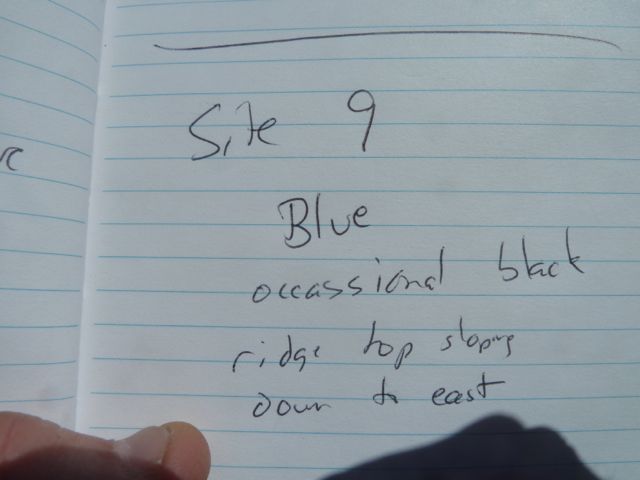 Site 9
Blue
occassional black
ridge top sloping
down to east